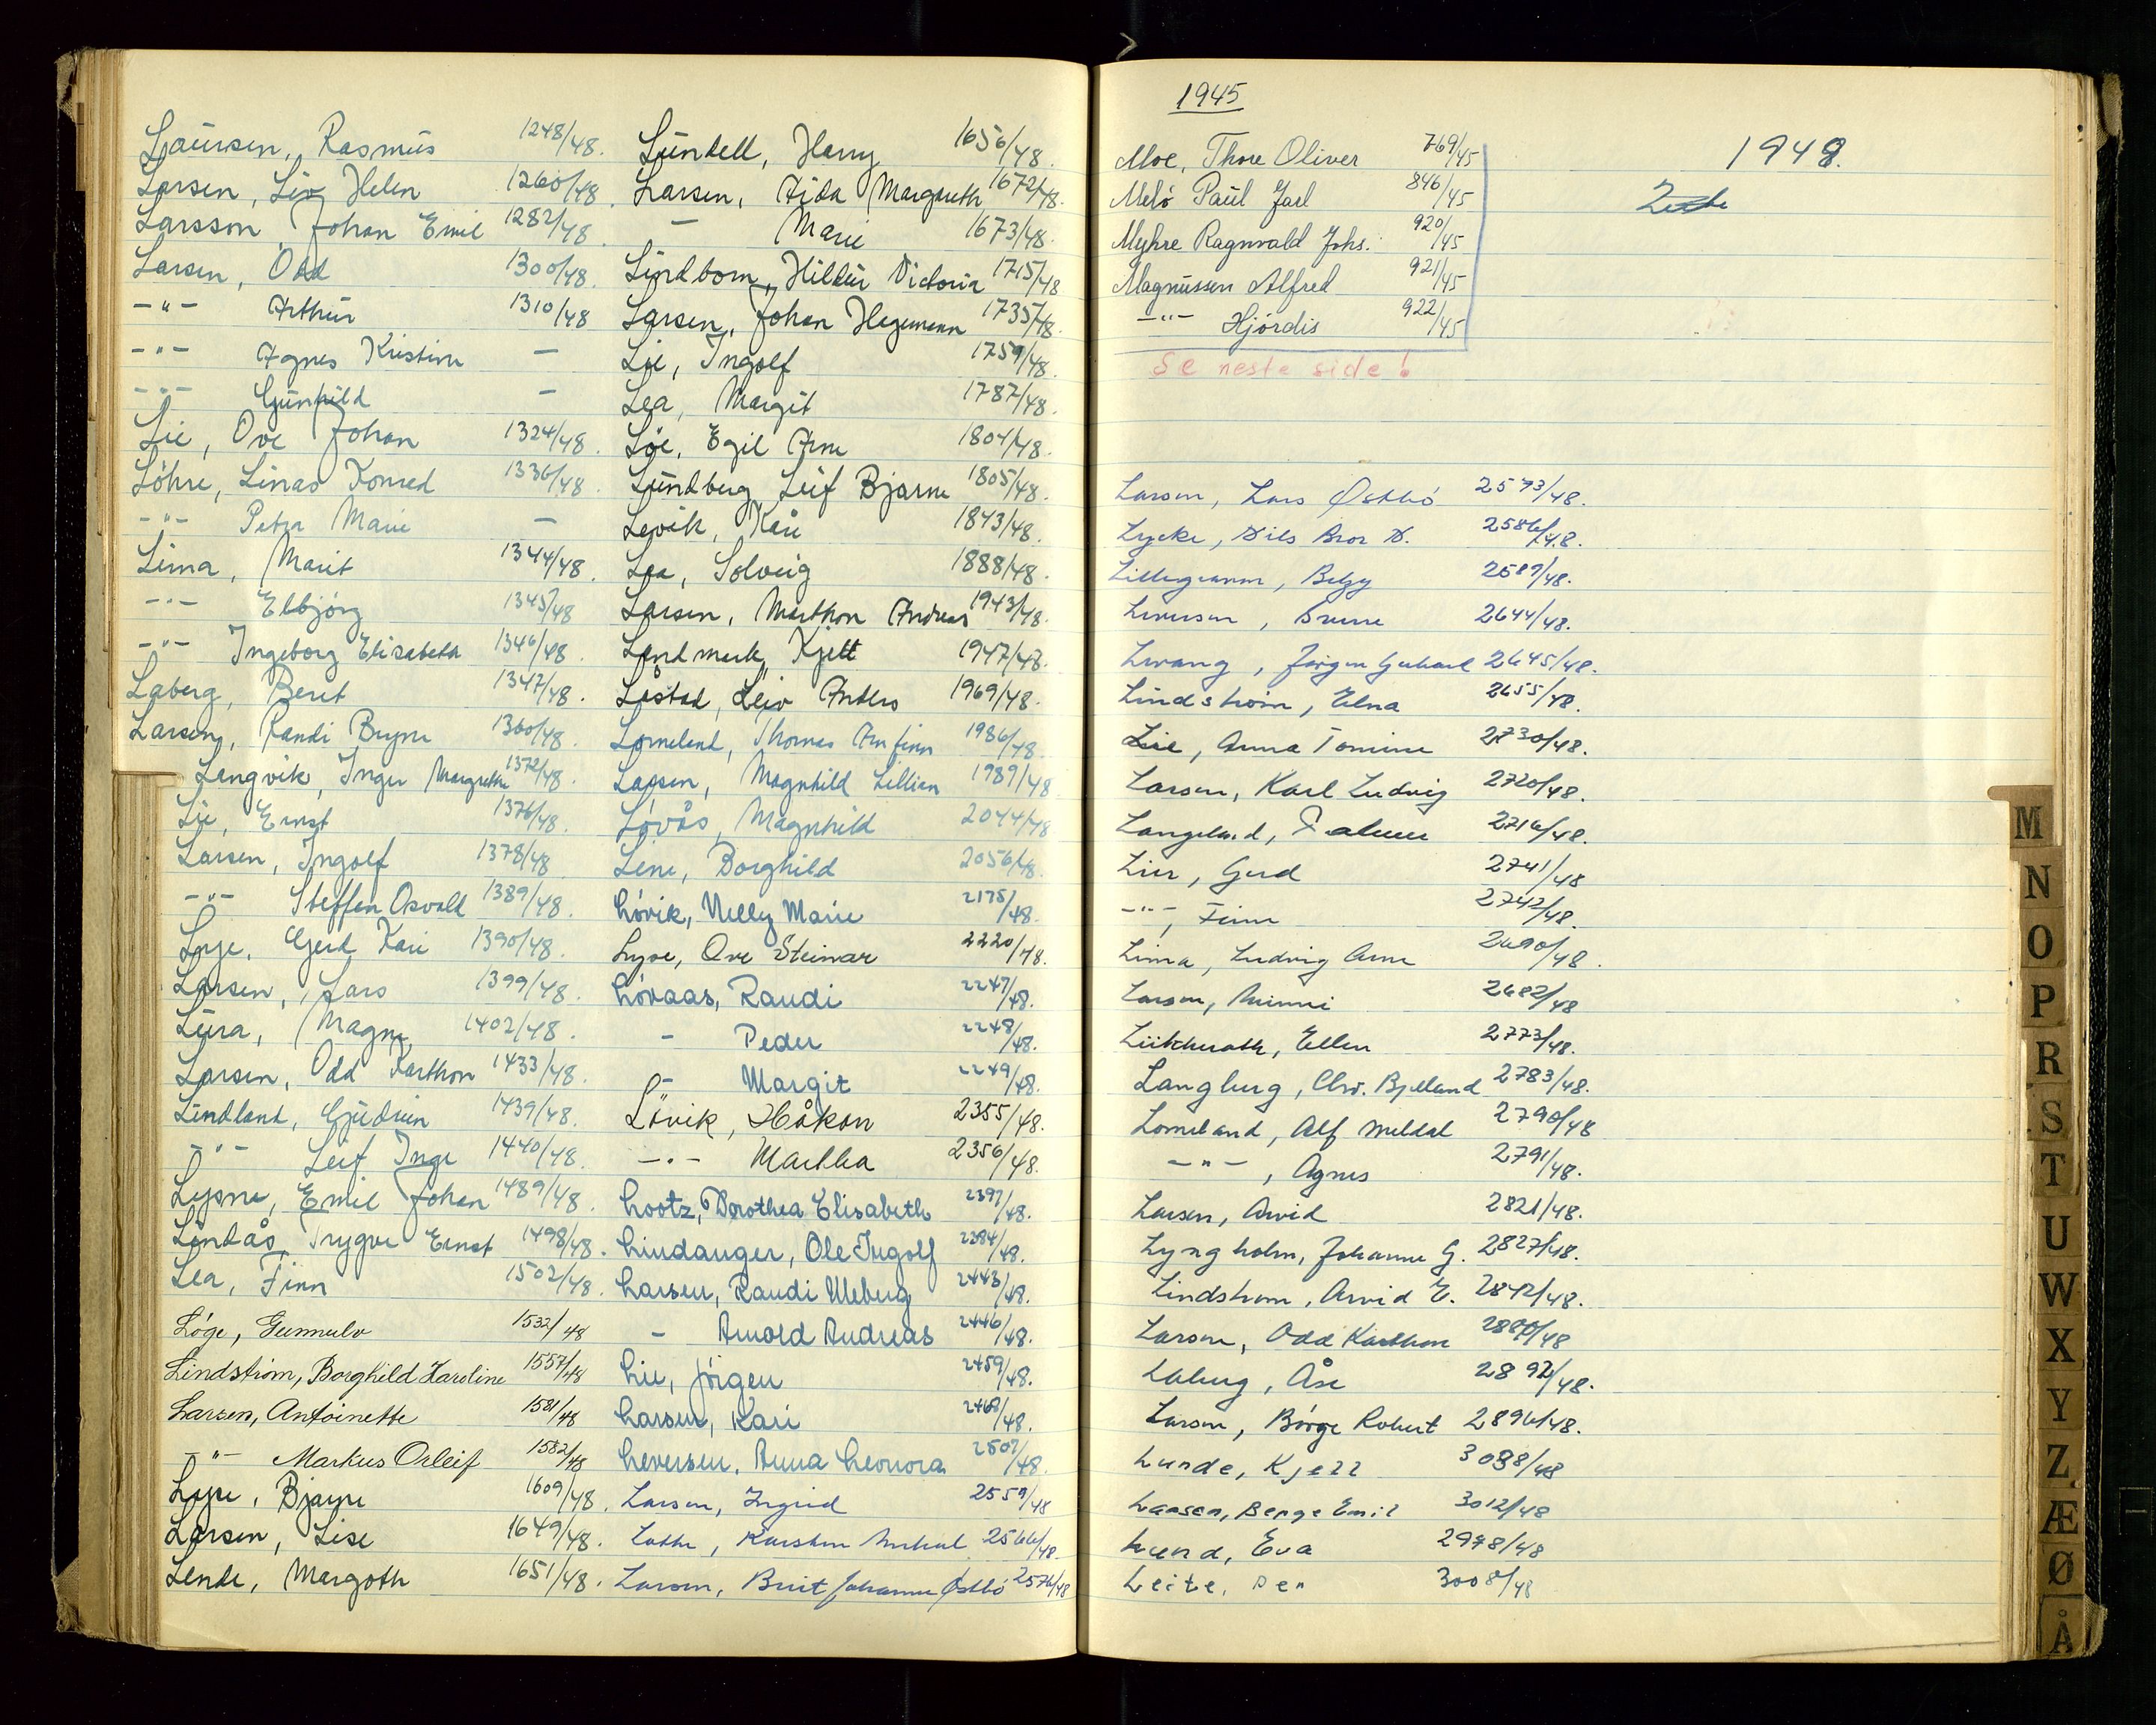 Laursen, Rasmus 1248/48.
Larsen, Liv Helen 1260/48.
Larsson, Johan Emil 1282/48
Larsen, Odd 1300/48.
-"- Arthur 1310/48
-"- Agnes Kristine -
-"- Gunhild -
Lie, Ove Johan 1324/48.
Löhre, Linas Konrad 1336/48.
-"- Petra Marie -
Lima, Marit 1344/48.
-"- Elbjörg 1345/48
-"- Ingeborg Elisabeth 1346/48.
Laberg, Berit 1347/48.
Larsen, Randi Bryne 1360/48.
Langvik, Inger Margrethe 1372/48.
Lie, Ernst 1376/48.
Larsen, Ingolf 1378/48
-"- Steffen Osvald 1389/48.
Lye, Gerd Kari 1390/48.
Larsen, Lars 1399/48.
Lura, Magne 1402/48.
Larsen, Odd Karthon 1433/48.
Lindland, Gudrun 1439/48.
-"- Leif Inge 1440/48.
Lysne, Emil Johan 1489/48.
Lindås, Trygve Ernst 1498/48.
Lea, Finn 1502/48.
Löge, Gunnulv 1532/48
Lindström, Borghild Karoline 1557/48
Larsen, Antoinette 1581/48
-"- Markus Orleif 1582/48
Lye, Bjarne 1609/48.
Larsen, Lise 1649/48.
Lende, Margoth 1651/48.
Lundell, Harry 1656/48.
Larsen, Aida Margareth 1672/48.
- Marie 1673/48.
Lindbom, Hildur Victoria 1715/48
Larsen, Johan Hagemann 1735/48.
Lie, Ingolf 1759/48.
Lea, Margit 1787/48.
Löe, Egil Arne 1804/48.
Lundberg, Leif Bjarne 1805/48.
Levik, Kåre 1843/48.
Lea, Solveig 1888/48.
Larsen, Marthon Andreas 1943/48.
Landmark, Kjell 1947/48.
Låstad, Leiv Anders 1969/48.
Lomeland, Thomas Arnfinn 1986/48.
Larsen, Magnhild Lillian 1989/48
Lövås, Magnhild 2044/48
Lene, Borghild 2056/48.
Lövik, Nelly Marie 2175/48.
Lyse, Ove Steinar 2220/48.
Lövaas, Randi 2247/48.
- Peder 2248/48.
- Margit 2249/48.
Lövik, Håkon 2355/48.
-"- Martha 2356/48.
Lootz, Dorothea Elisabeth 2397/48.
Lindanger, Ole Ingolf 2284/48.
Larsen, Randi Meberg 2443/48.
- Arnold Andreas 2446/48.
Lie, Jörgen 2459/48.
Larsen, Kari 2468/48.
Leversen, Anna Leonora 2507/48.
Larsen, Ingrid 2559/48
Lothe, Karsten 2566/48
Larsen, Brit Johanne Östbö 2574/48
1945
Moe, Thore Oliver 769/45
Melö Paul Jarl 846/45
Myhre Ragnvald Johs. 920/45
Magnussen Alfred 921/45
-"- Hjördis 922/45
Se neste side!
1948.
Larsen, Lars Østbö 2573/48.
Lycke, Nils Bror N. 2586/48.
Lillegraven, Betzy 2589/48.
Leversen, Sverre 2644/48.
Lervang, Jørgen Gerhard 2645/48.
Lindstrøm, Elna 2655/48.
Lie, Anna Tomine 2730/48.
Larsen, Karl Ludvig 2720/48.
Langeland, Palmer 2716/48.
Lier, Gerd 2741/48
-"-, Finn 2742/48.
Lima, Ludvig Arne 2690/48.
Larsen, Minni 2682/48
Lütcherath, Ellen 2773/48.
Langberg, Chr. Bjelland 2783/48.
Lomeland, Alf Meldal 2790/48
-"-, Agnes 2791/48.
Larsen, Arvid 2821/48.
Lyngholm, Johanne G. 2827/48.
Lindstrøm, Arvid E. 2842/48.
Larsen, Odd Karthon 2880/48
Laberg, Åse 2892/48.
Larsen, Börge Robert 2896/48.
Lunde, Kjell 3038/48
Laasen, Berge Emil 3012/48
Lund, Eva 2978/48
Leite, Per 3008/48
M
N
O
P
R
S
T
U
W
X
Y
Z
Æ
Ø
Å